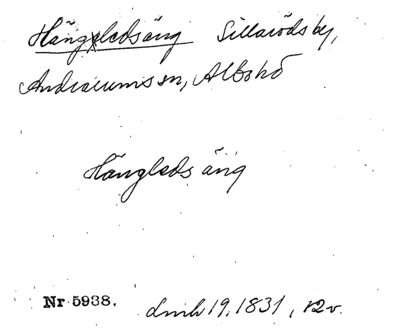 Hängledsäng Sillarödsby,
Andrarums sn, Albo hd
Hängleds äng
Nr 5938. Lmh 19, 1831, 12 v.